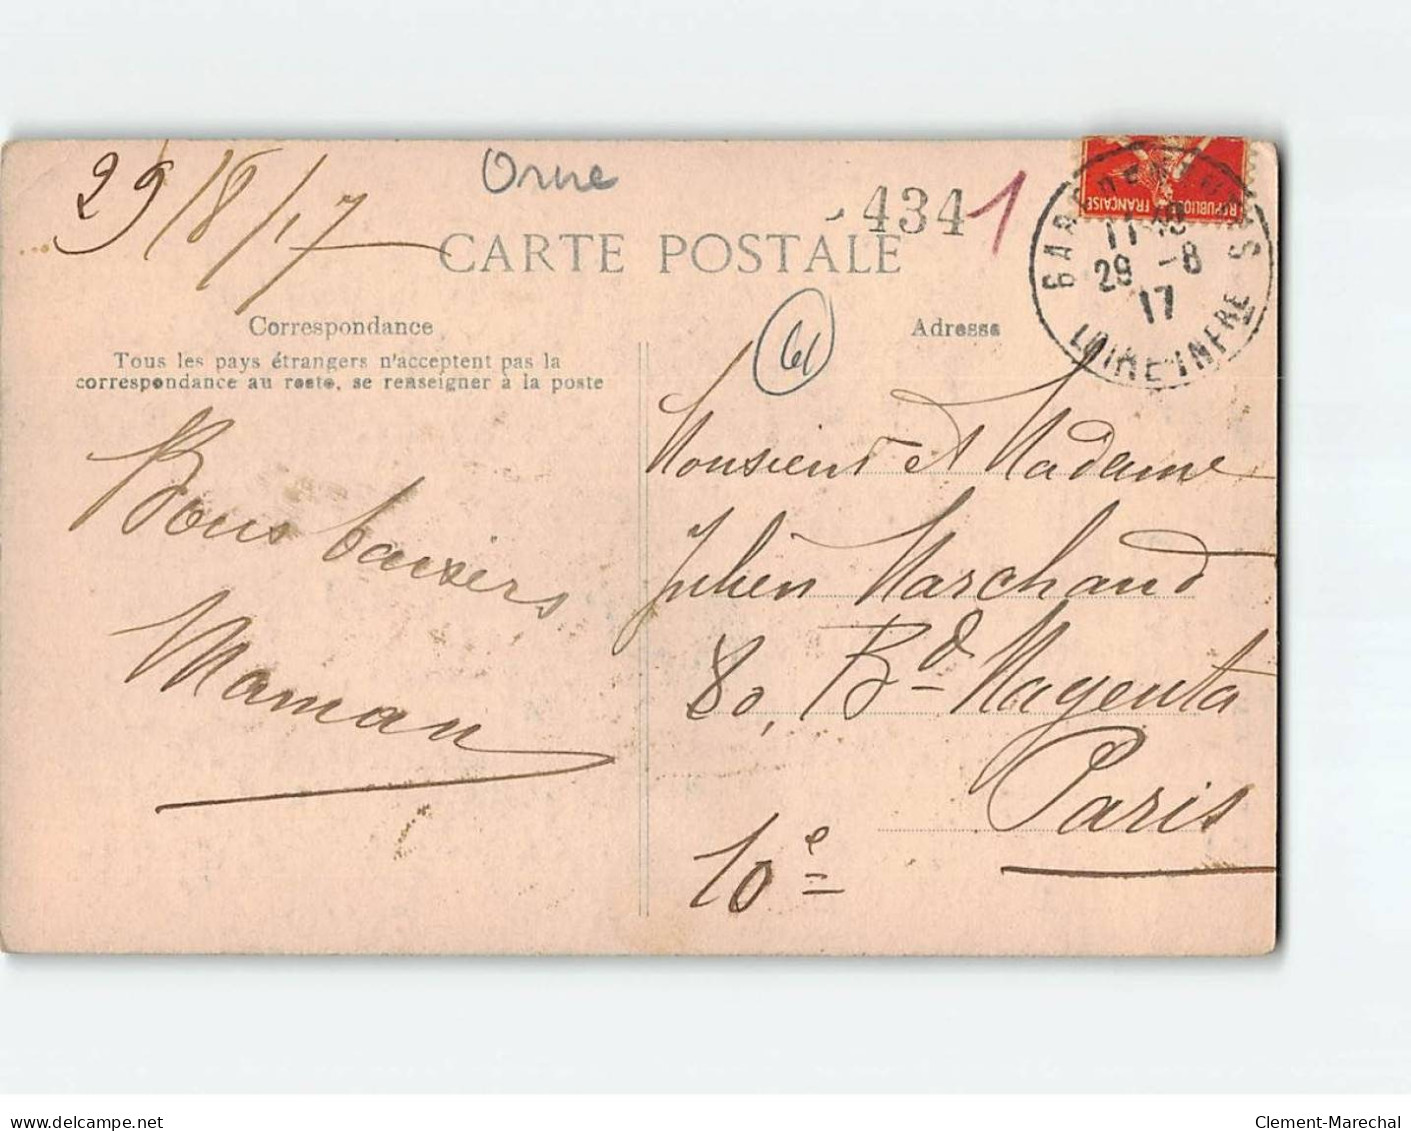 29/8/17
Orne
4341
CARTE POSTALE
REPUBLIQUE FRANÇAISE
29 -8
17
LOIRE INFRE
61
Correspondance
Adresse
Tous les pays étrangers n'acceptent pas la
correspondance au recto, se renseigner à la poste
Bons baisers
Maman
Monsieur et Madame
Julien Marchand
80, Bd Magenta
Paris
10e
delcampe.net
Clement-Marechal